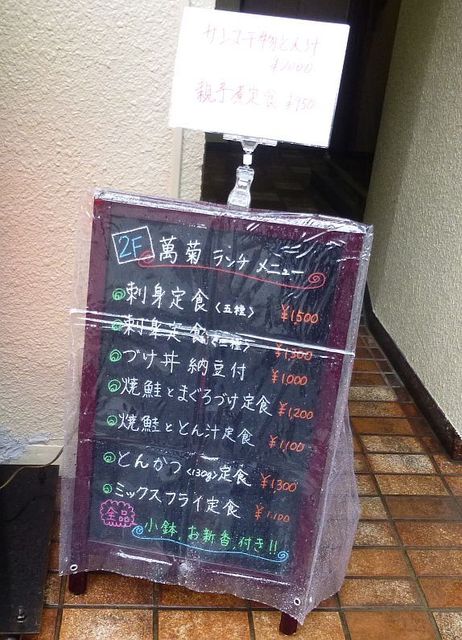 サンマ干物とん汁
¥1000
親子煮定食 ¥950
2F 萬菊 ランチ メニュー
刺身定食〈五種〉 ¥1500
刺身定食〈三種〉 ¥1,300
づけ丼 納豆付 ¥1,000
焼鮭とまぐろづけ定食 ¥1,200
焼鮭ととん汁定食 ¥1,100
とんかつ〈130g〉定食 ¥1300
ミックスフライ定食 ¥1,100
全品 小鉢、お新香、付き!!